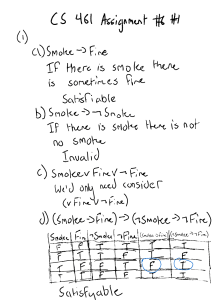 CS 461 Assignment #6 #1
(1)
a) Smoke → Fire
If there is smoke there
is sometimes fire
Satisfiable
b) Smoke → ¬ Smoke
If there is smoke there is not
no smoke
Invalid
c) Smoke v Fire v ¬ Fire
We'd only need consider
(v Fire v ¬ Fire)
d) (Smoke → Fire) → (¬Smoke → ¬ Fire)
Smoke Fire ¬Smoke ¬Fire
Satisfyable